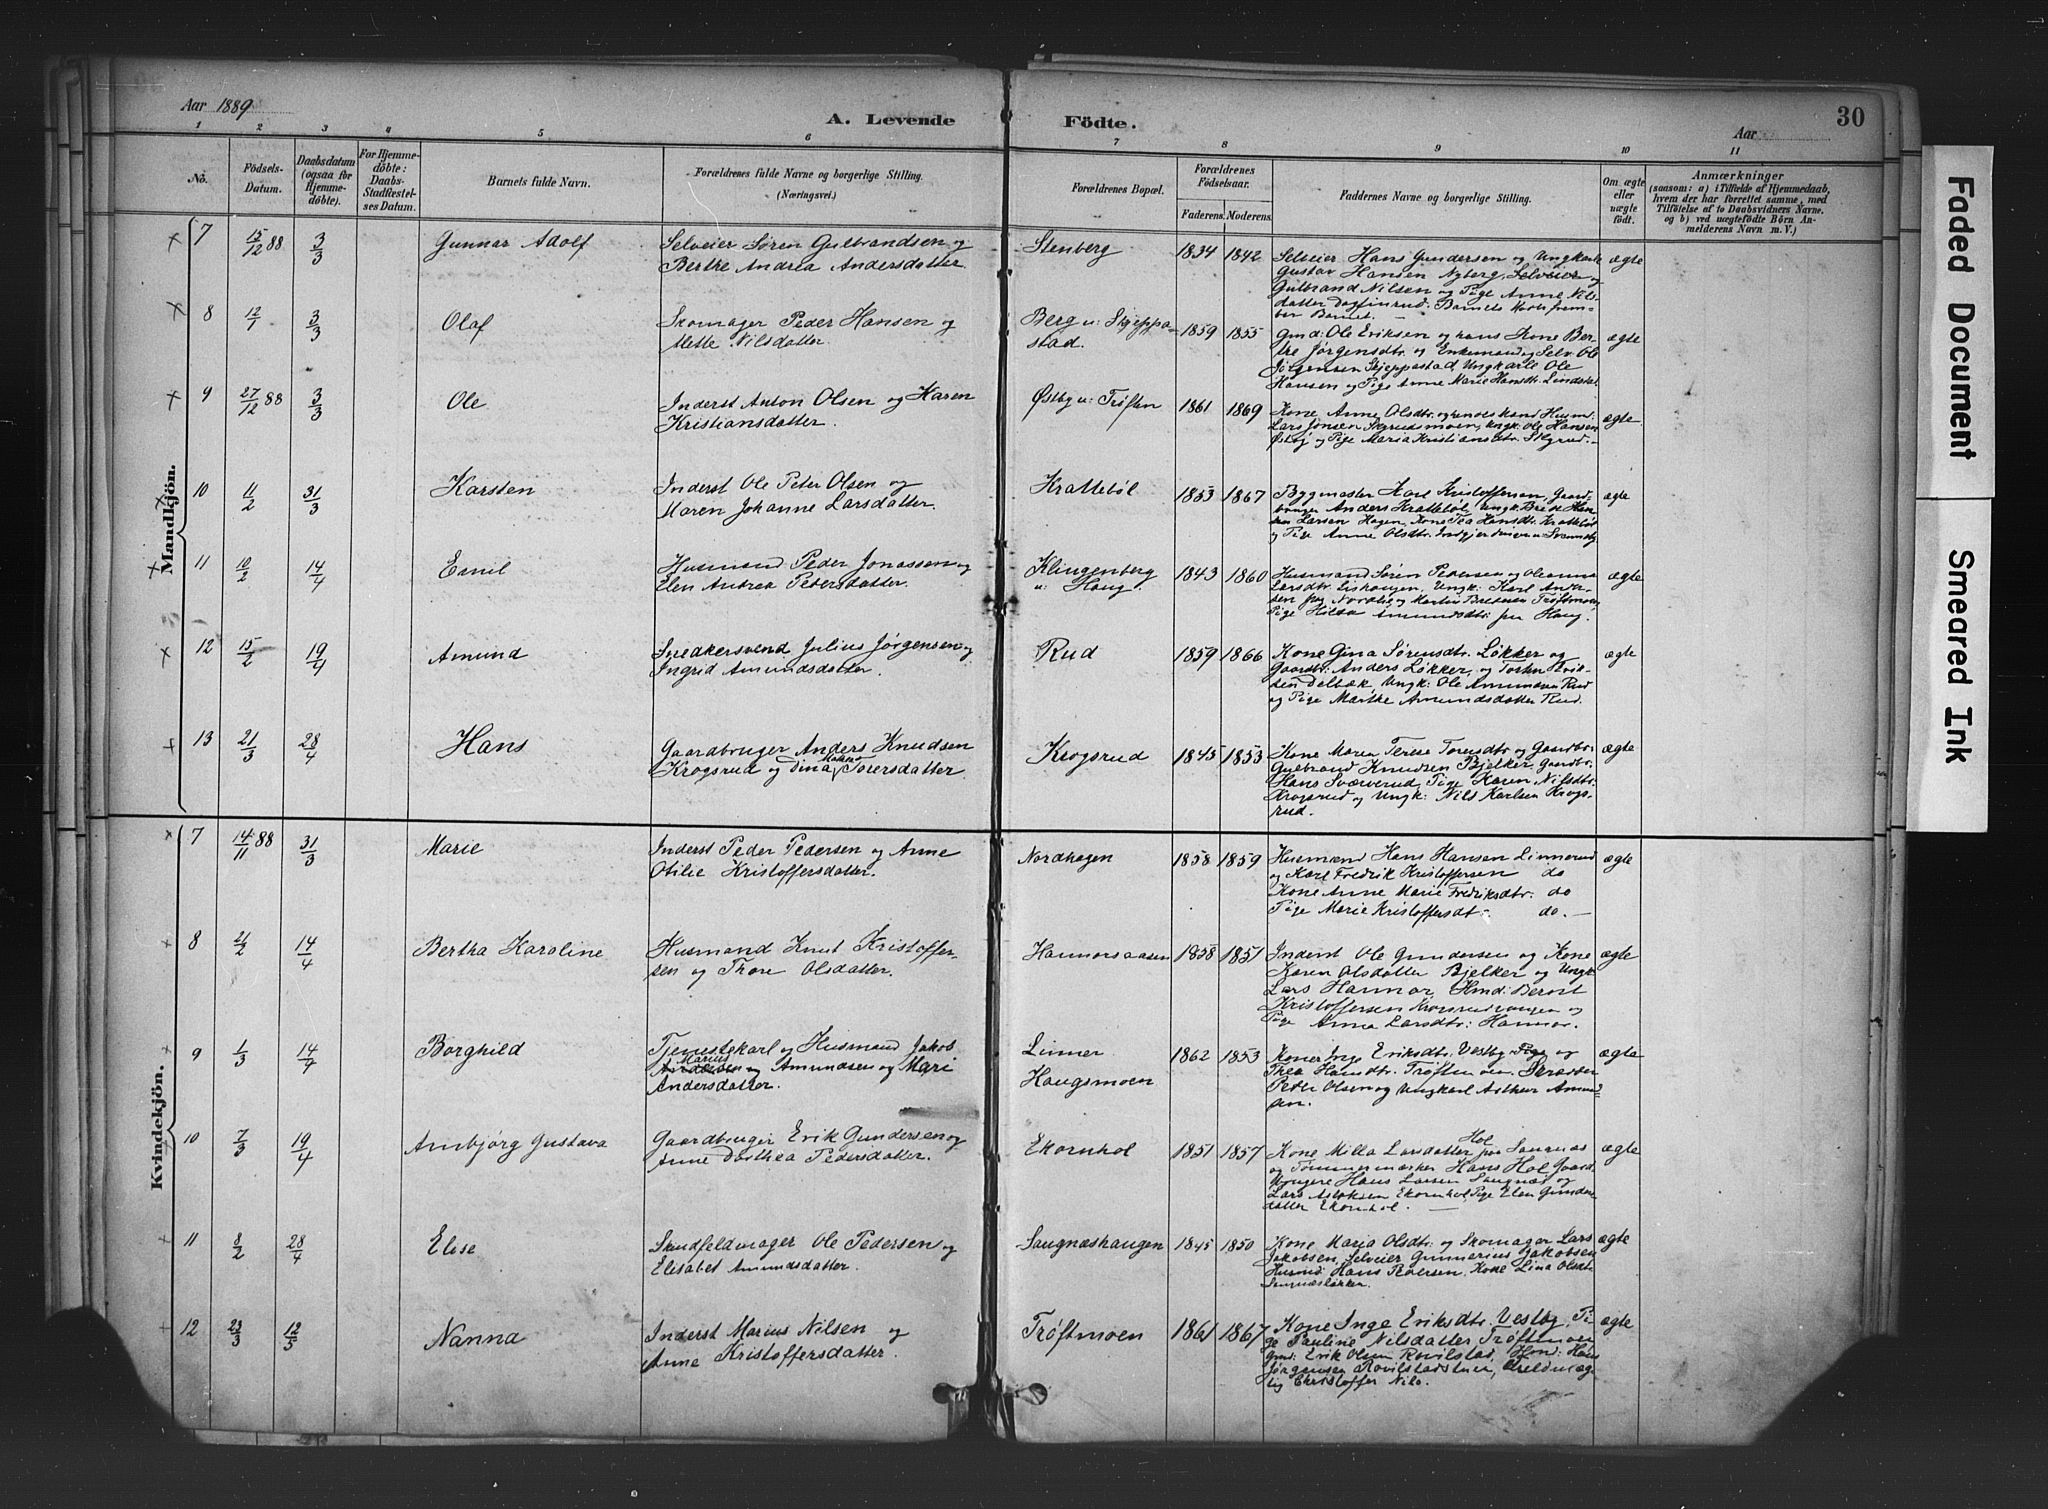 Aar 1889
A. Levende Födte.
Aar
30
1 2 3 4 5 6 7 8 9 10 11
No.
Födsels-Datum.
Daabsdatum (ogsaa for Hjemmedöbte).
For Hjemmedöbte: Daabs-Stadfæstelses Datum.
Barnets fulde Navn.
Forældrenes fulde Navne og borgerlige Stilling. (Næringsvei.)
Forældrenes Bopæl.
Forældrenes Födselsaar.
Faderens. Moderens.
Faddernes Navne og borgerlige Stilling.
Om ægte eller uægte födt.
Anmærkninger
(saasom: a) i Tilfælde af Hjemmedaab, hvem der har forrettet samme, med Tilföielse af to Daabsvidners Navne, og b) ved uægtefödte Börn Anmelderens Navn m. V.)
Mandkjön.
7 15/12 88 3/3 Gunnar Adolf
Selveier Søren Gulbrandsen og
Berthe Andrea Andersdatter.
Stenberg 1834 1842
Selveier Hans Gundersen og Ungkarle
Gustav Hansen Nyberg, Selveier
Gulbrand Nilsen og Pige Anne Nils-
datter Dagfinrud. Barnets Moder frem-
bar Barnet.
ægte
8 12/1 3/3 Olaf
Skomager Peder Hansen og
Mette Nilsdatter
Berg u: Skjeppe-
stad. 1859 1855
Gmd: Ole Eriksen og hans Kone Ber-
the Jørgensdtr. og Enkemand og Selv. Ole
Jørgensen Skjeppestad, Ungkarle Ole
Hansen og Pige Anne Marie Hansdtr. Lindstad
ægte
9 27/12 88 3/3 Ole
Inderst Anton Olsen og Karen
Kristiansdatter.
Østby u: Trøften 1861 1869
Kone Anne Olsdtr. og hendes Mand Husmd:
Lars Jonsen Skyrudsmoen, Ungk: Ole Hansen
Østby og Pige Maria Kristiansdtr. Skyrud.
ægte
10 11/2 31/3 Karsten
Inderst Ole Peter Olsen og
Maren Johanne Larsdatter.
Krattebøl 1853 1867
Bygmester Karl Kristoffersen, Gaard-
bruger Anders Krattebøl, Ungk:
Larsen Hagen, Kone Tea Hansdtr. Krattebøl
og Pige Anne Olsdtr.
ægte
11 10/2 14/4 Emil
Husmand Peder Jonassen og
Elen Andrea Pedersdatter.
Klingenberg
u: Haug. 1843 1860
Husmand Søren Pedersen og Oleanna
Larsdtr. Lishaugen, Ungk: Karl Ander-
sen fra Nordlie og Martin Bredesen Trøftmoen
Pige Hilda Amundsdtr: fra Haug.
ægte
12 15/2 19/4 Amund
Snedkersvend Julius Jørgensen og
Ingrid Amundsdatter.
Rud 1859 1866
Kone Gina Sørensdtr. Løkker og
Gaardbr: Anders Løkker, og Torsten Erik-
sen Delbæk Ungk: Ole Amundsen Rud
og Pige Marthe Amundsdatter Rud.
ægte
13 21/3 28/4 Hans
Gaardbruger Anders Knudsen
Krogsrud og Dina Torersdatter.
Krogsrud 1845 1853
Kone Maren Terese Torersdtr og Gaardbr.
Gulbrand Knudsen Bjelker, Gaardbr.
Hans Sværverud, Pige Karen Nilsdtr.
Krogsrud og Ungk: Nils Karlsen Krogs-
rud.
ægte
Kvindekjön.
7 14/11 88 31/3 Marie
Inderst Peder Pedersen og Anne
Otilie Kristoffersdatter.
Nordhagen 1858 1859
Husmænd Hans Hansen Linnerud
og Karl Fredrik Kristoffersen do
Kone Anne Marie Fredriksdtr: do
Pige Marie Kristoffersdt: do.
ægte
8 21/2 14/4 Bertha Karoline
Husmand Knut Kristoffer-
sen og Thore Olsdatter.
Hannorsaasen 1858 1851
Inderst Ole Gundersen og Kone
Karen Olsdatter Bjelker og Ungk
Lars Hannor, Hmd: Bernt
Kristoffersen Krogsrudvangen og
Pige Anna Larsdtr: Hannor.
ægte
9 1/3 14/4 Borghild
Tjenestekarl og Husmand Jakob
Marius
Amundsen og Mari
Andersdatter.
Linner
Haugsmoen 1862 1853
Kone Inge Eriksdtr. Vestby Pige og
Thea Hansdtr: Trøftmoen. Skrædder
Peter Olsen og Ungkarl Arthur Amund-
sen.
ægte
10 7/3 19/4 Arnbjørg Gustava
Gaardbruger Erik Gundersen og
Anne Dorthea Pedersdatter.
Ekornhol 1851 1857
Hol
Kone Milla Larsdatter fra Saugnæs
og Tømmermærker Hans Hol, Gaard-
brugere Hans Larsen Saugnæs og
Lars Aslaksen Ekornhol, Pige Elen Gunders-
datter Ekornhol.
ægte
11 8/2 28/4 Elise
Skindfeldmager Ole Pedersen og
Elisabet Amundsdatter.
Saugnæshaugen 1845 1850
Kone Maria Olsdtr: og Skomager Lars
Jakobsen, Selveier Gunnarius Jakobsen
Husmd: Hans Pedersen, Kone Lina Olsdtr.
Saugnæsløkken.
ægte
12 23/3 12/5 Nanna
Inderst Marius Nilsen og
Anne Kristoffersdatter.
Trøftmoen 1861 1867
Kone Inge Eriksdtr. Vestby, Pi-
ge Pauline Nilsdatter Trøftmoen
Gmd: Erik Olsen Rovilstad, Hmd: Hans
Jørgensen Rovilstadstuen,
Christoffer Nils.
ægte
Faded Document
Smeared Ink